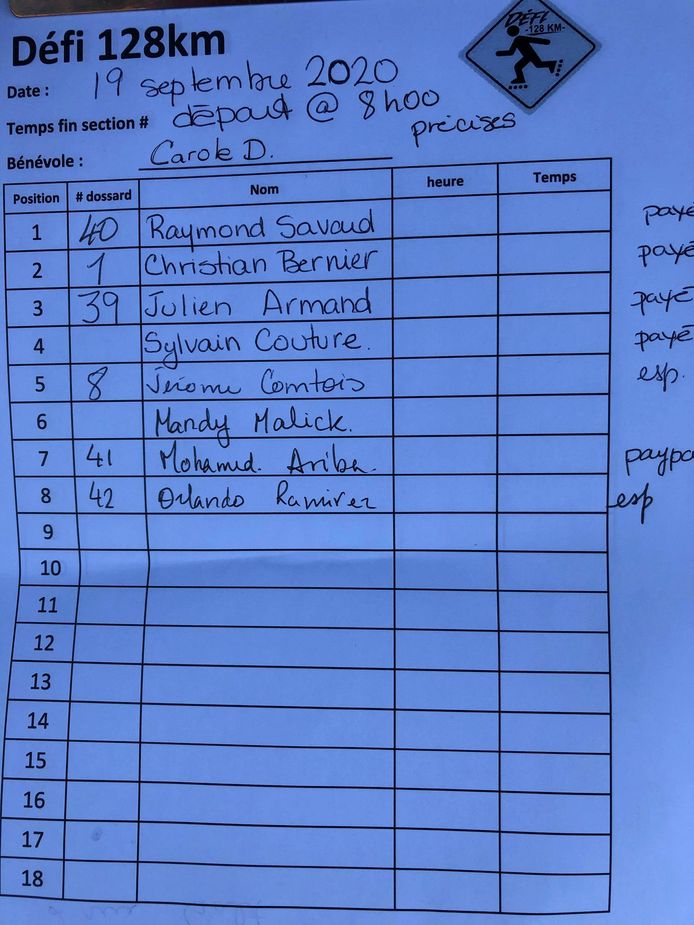 Défi 128km
DÉFI
-128 KM-
Date : 19 septembre 2020
Temps fin section # départ @ 8h00
précises
Bénévole : Carole D.
Position # dossard Nom heure Temps
1 40 Raymond Savaud payé
2 1 Christian Bernier payé
3 39 Julien Armand payé
4 Sylvain Couture. payé
5 8 Jérome Comtois esp.
6 Mandy Malick.
7 41 Mohamed. Ariba. paypa
8 42 Orlando Ramirez esp
9
10
11
12
13
14
15
16
17
18